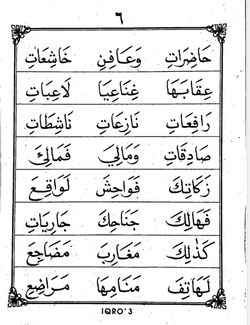 ٦
حَاضِرَاتِ وَعَافِنِ خَاشِعَاتِ
عِقَابَهَا غِنَاعِيَا لَاعِبَاتِ
رَافِعَاتِ نَازِعَاتِ نَاشِطَاتِ
صَادِقَاتِ وَمَالِيَ فَمَالِئَ
زَكَاتِكَ فَوَاحِشَ لَوَاقِعَ
فَهَالِكَ جَنَاحِكَ جَارِيَاتِ
كَذٰلِكَ مَغَارِبَ مَضَاجِعَ
لَهَاتِفِ مَنَامِهَا مَرَاضِعَ
IQRO'3